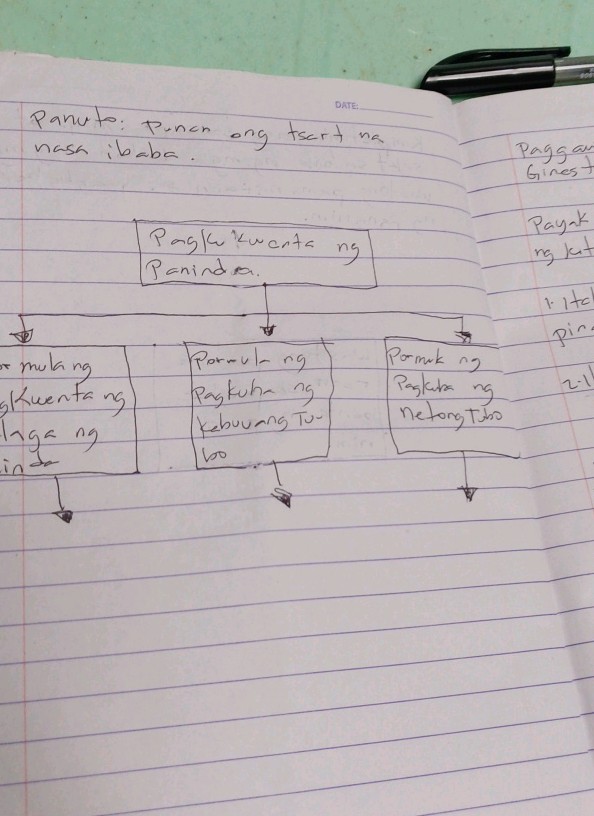 DATE:
Panuto: Punan ang tsart na
nasa ibaba.
Pagkukwenta ng
Paninda.
mula ng
Kwenta ng
laga ng
inda
Pormula ng
Pagkuha ng
Kabuuang Tu-
bo
Pormula ng
Pagkuha ng
netong Tubo
Paggaw
Gines
Payak
ng kit
1. Ital
pin
2.